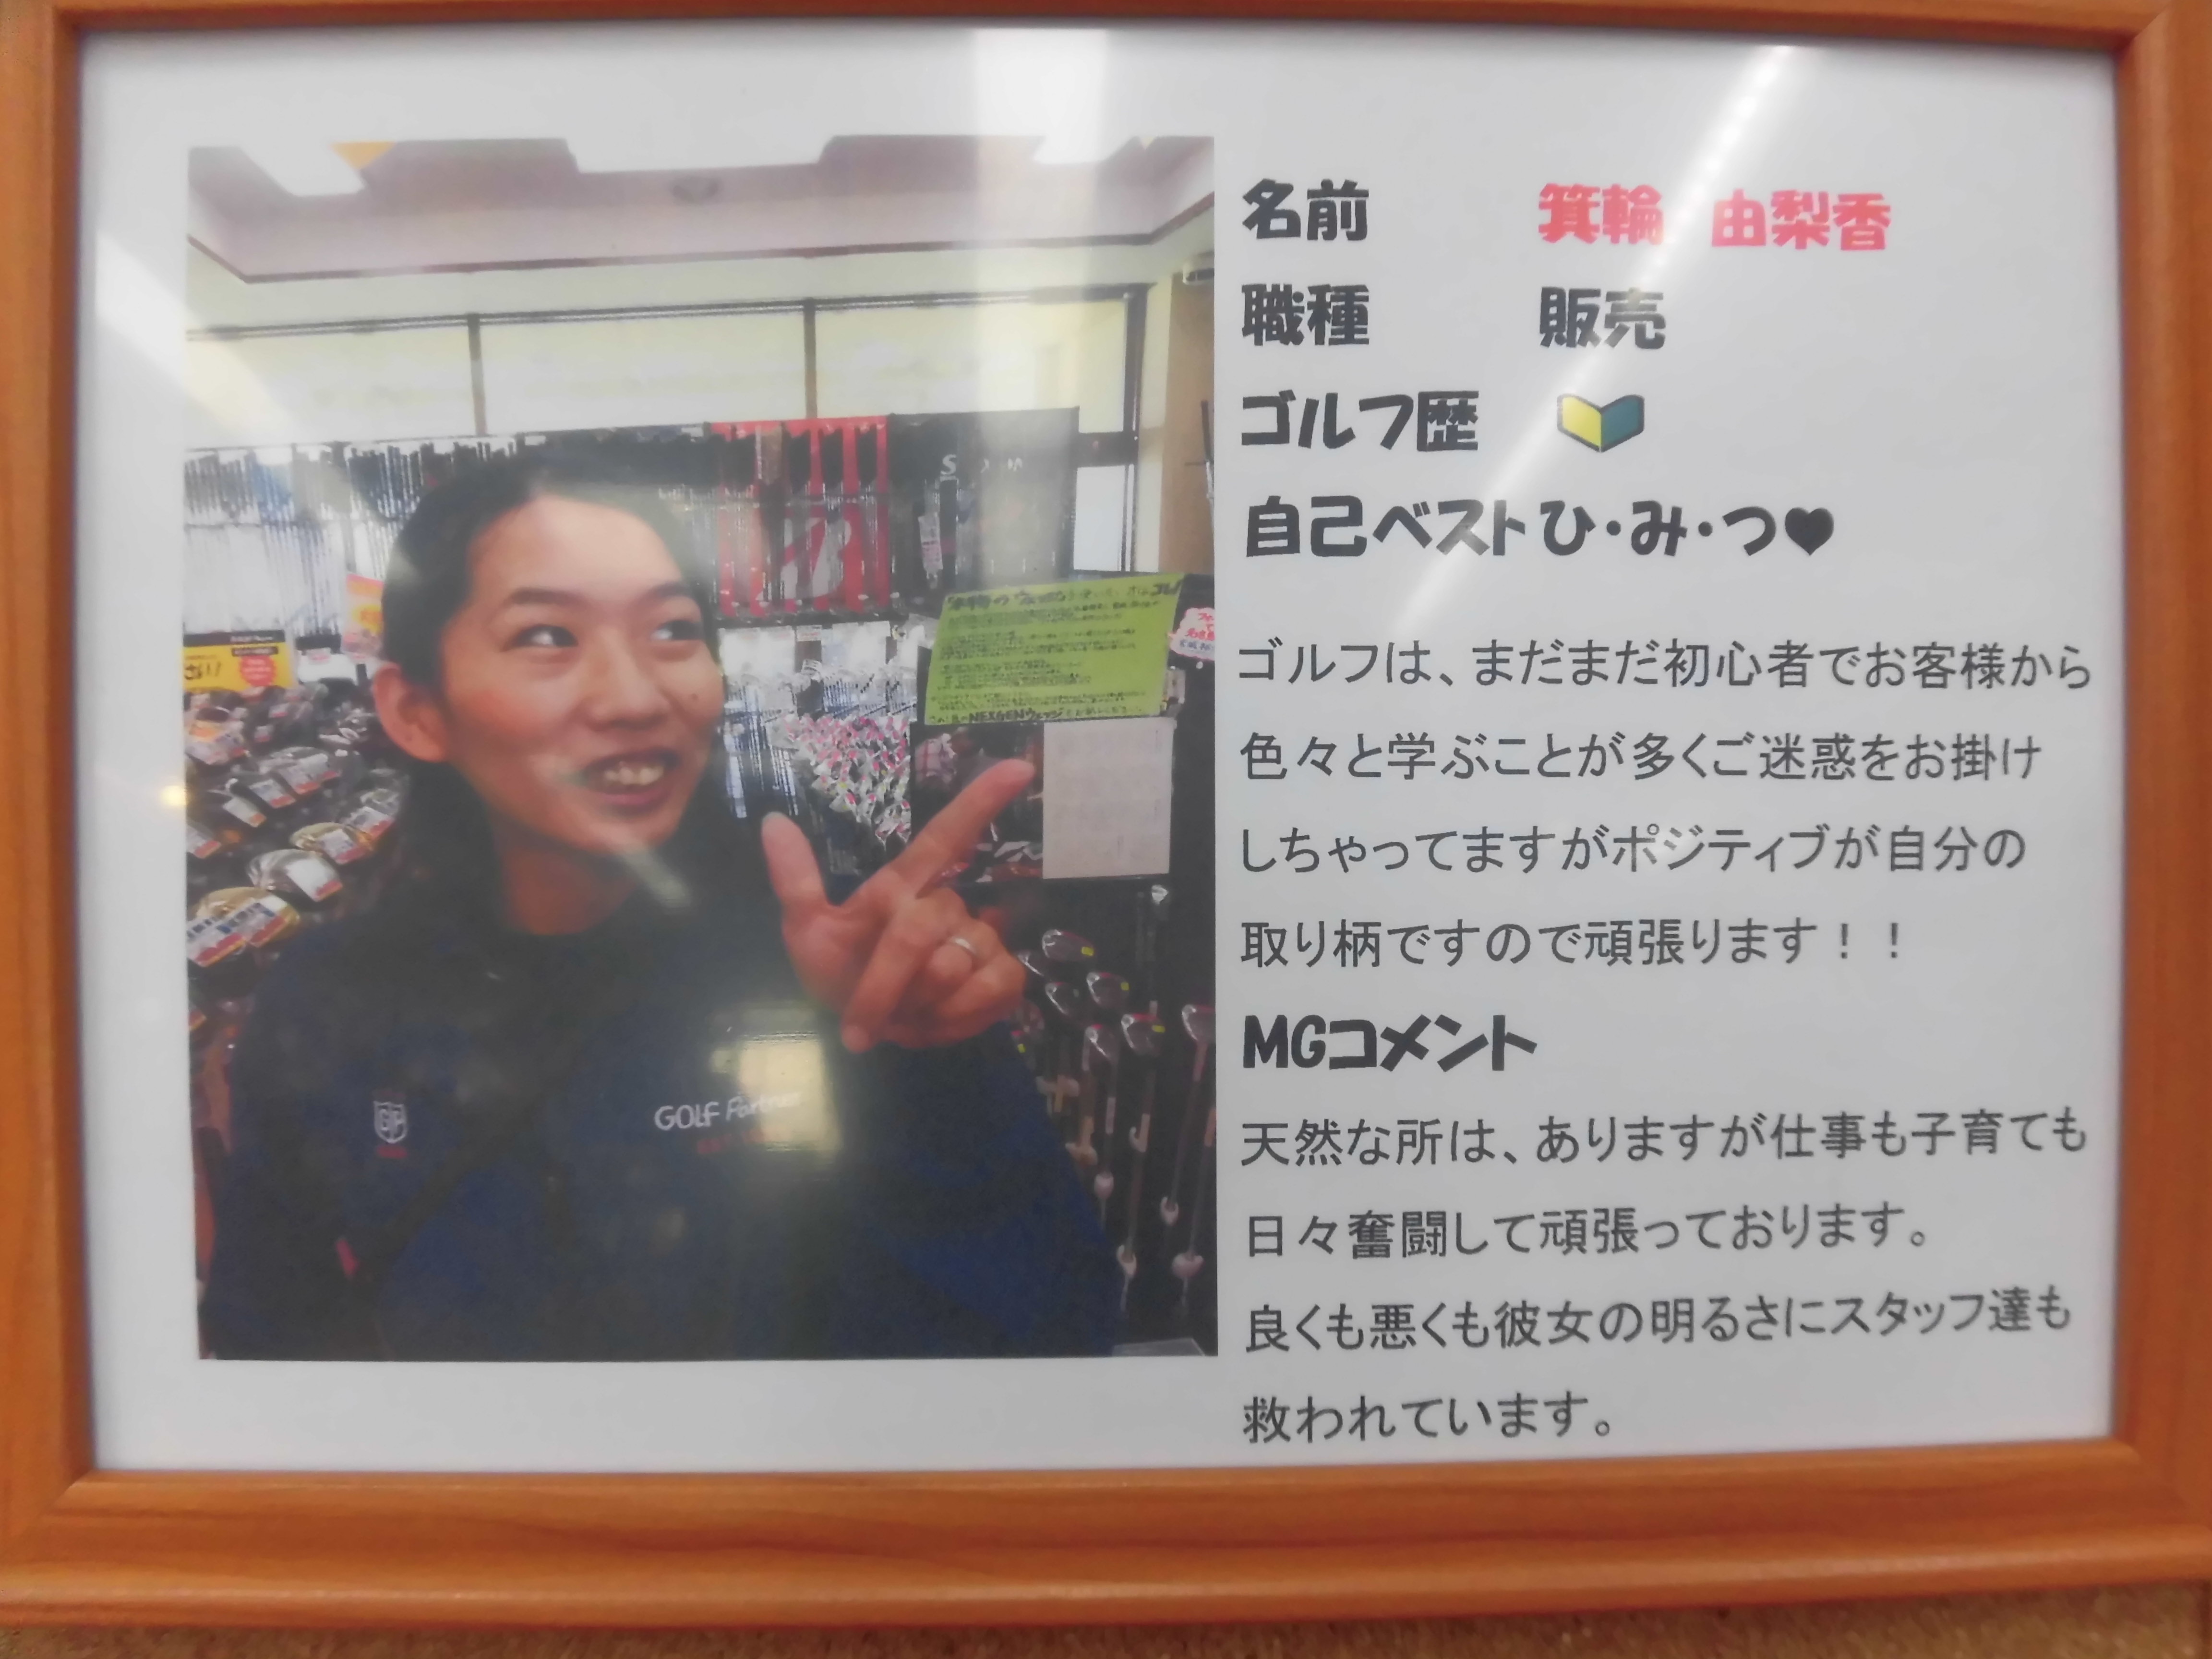 名前 箕輪 由梨香
職種 販売
ゴルフ歴
自己ベスト ひ・み・つ♥
ゴルフは、まだまだ初心者でお客様から
色々と学ぶことが多くご迷惑をお掛け
しちゃってますがポジティブが自分の
取り柄ですので頑張ります！！
MGコメント
天然な所は、ありますが仕事も子育ても
日々奮闘して頑張っております。
良くも悪くも彼女の明るさにスタッフ達も
救われています。
GOLF Partner